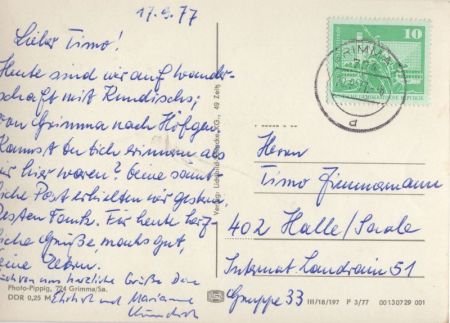 17.9.77
Lieber Timo!
Heute sind wir auf Wander-
schaft mit Kundischs;
von Grimma nach Höfgen
Kannst Du Dich erinnern als
wir hier waren? Deine sämt-
liche Post erhielten wir gestern,
Besten Dank. Für heute herz-
liche Grüße, machs gut
Deine Eltern.
Auch von uns herzliche Grüße Dein
Ehrhart und Marianne
Kundisch
Photo-Pippig, 724 Grimma/Sa.
DDR 0,25 M
KG., 49 Zeitz
10
DEUTSCHE DEMOKRATISCHE REPUBLIK
GRIMMA
d
Herrn
Timo Zimmermann
402 Halle/Saale
Internat Landrain 51
Gruppe 33
III/18/197 P 3/77 00130729 001